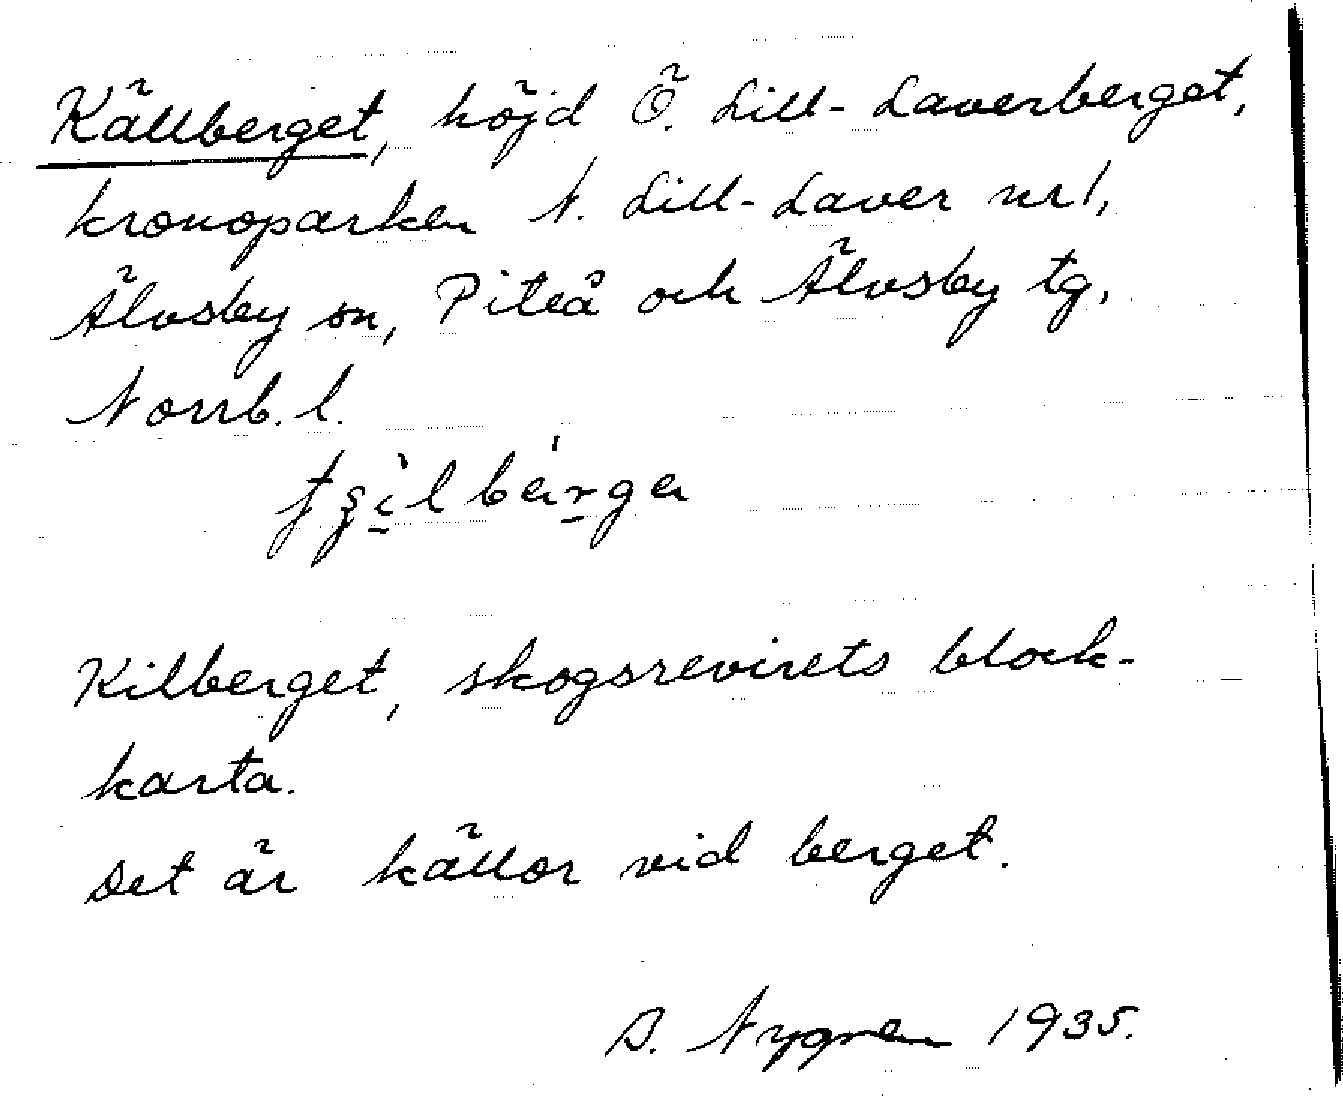 Källberget, höjd Ö. Lill-Laverberget,
kronoparken N. Lill-Laver nr 1,
Älvsby sn, Piteå och Älvsby tg,
Norrb. l.
Kilberget, skogsrevirets block-
karta.
Det är källor vid berget.
B. Nygren 1935.